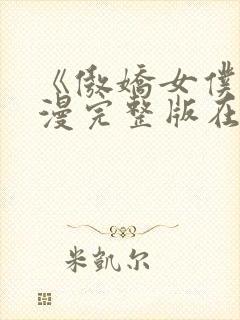 《傲娇女僕
漫完整版在
米凱尔